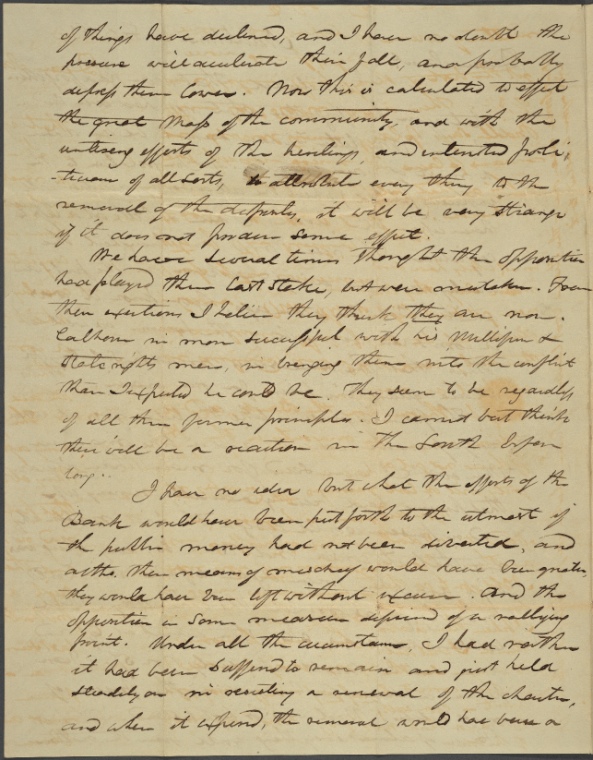 of things have declined, and I have no doubt the
pressure will accelerate their fall, and probably
depress them lower. Now this is calculated to effect
the great mass of the community, and with the
untiring efforts of the hirelings, and interested poli-
-ticians of all sorts, to attribute every thing to the
removal of the deposits, it will be very strange
if it does not produce some effect.
We have several times thought the opposition
had played their last stake, but were mistaken. From
their exertions I believe they think they are now.
Calhoun is more successful with his Nullifiers &
State rights men, in bringing them into the conflict
than I expected he could be. They seem to be regardless
of all their former principles. I cannot but think
there will be a reaction in the South before
long.
I have no idea but what the efforts of the
Bank would have been put forth to the utmost if
the public money had not been diverted, and
altho. their means of mischief would have been greater,
they would have been left without excuse. And the
opposition in some measure deprived of a rallying
point. Under all the circumstances, I had rather
it had been suffered to remain and just held
steadily on in resisting a renewal of the charter,
and when it expired, the removal would have been a